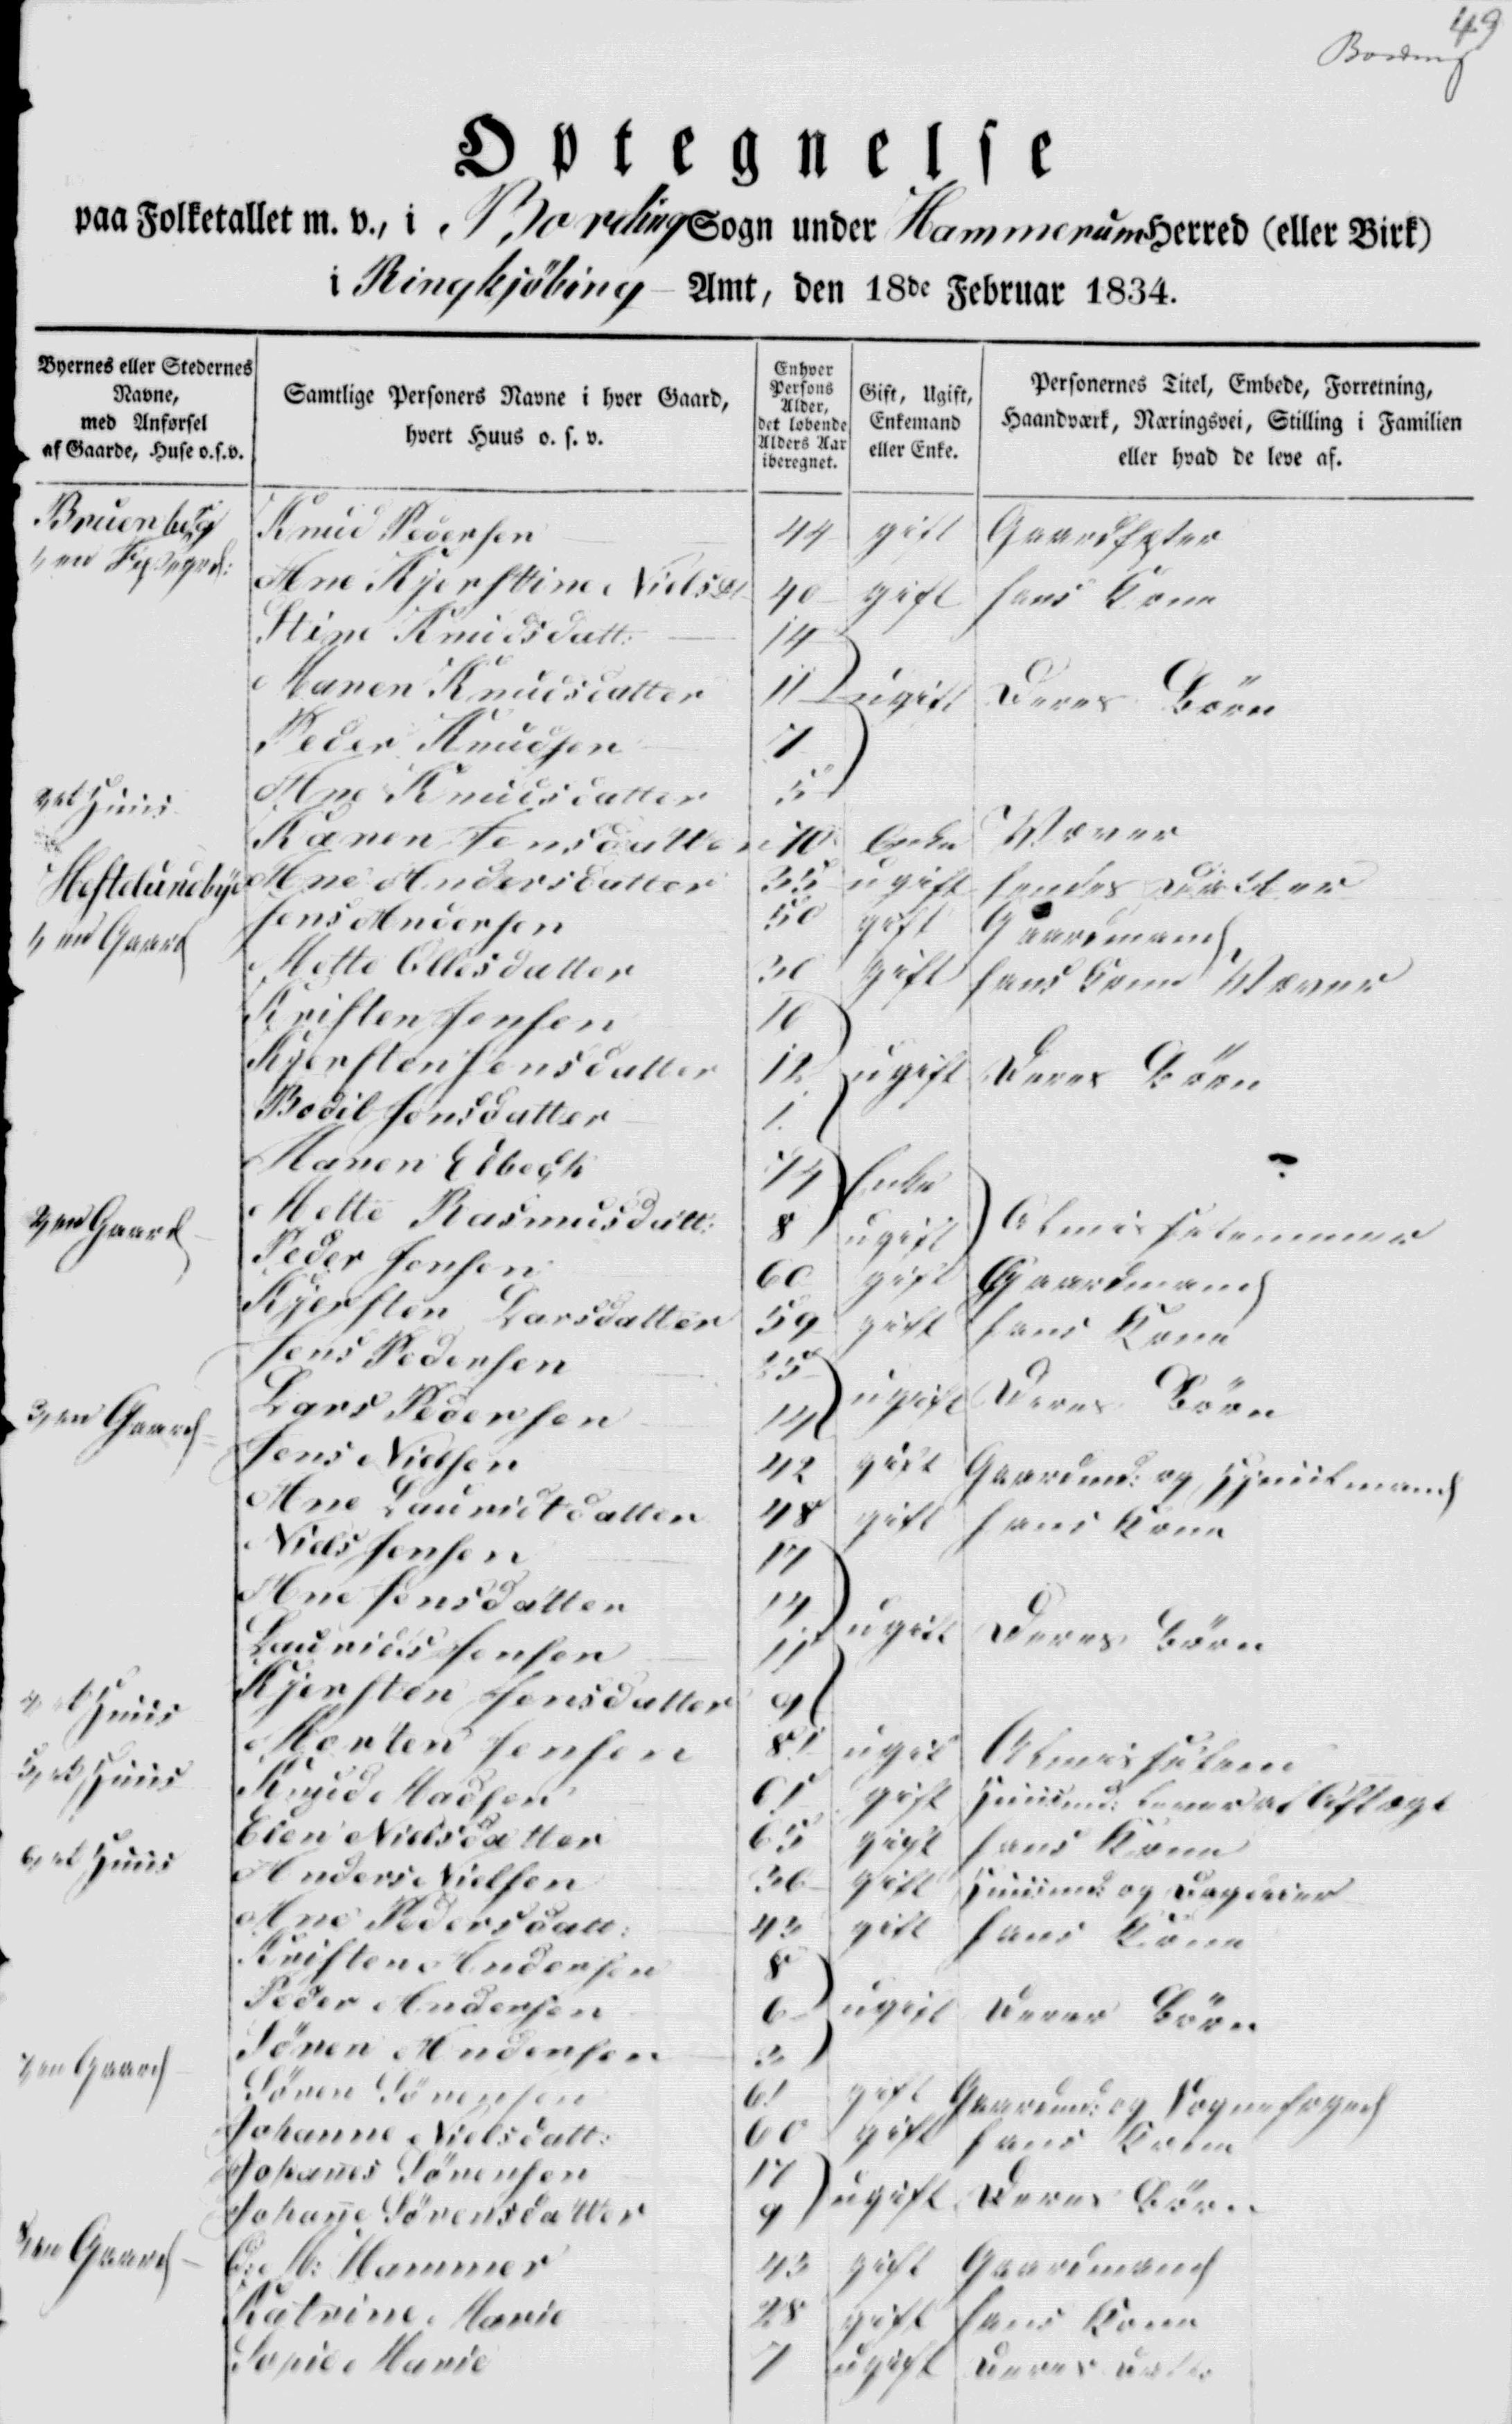 49
Bording
Optegnelse
paa Folketallet m. v., i Bording Sogn under Hammerum Herred (eller Birk)
i Ringkjöbing Amt, den 18de Februar 1834.
Byernes eller Stedernes Navne, med Anførsel af Gaarde, Huse o.s.v.
Samtlige Personers Navne i hver Gaard, hvert Huus o. s. v.
Enhver Persons Alder, det løbende Alders Aar iberegnet.
Gift, Ugift, Enkemand eller Enke.
Personernes Titel, Embede, Forretning, Haandværk, Næringsvei, Stilling i Familien eller hvad de leve af.
Knud Pedersen 44 gift
1, en Ane Kjerstine Nielsdt 40 gift hans Kone
Stine Knudsdatt: 14
Maren Knudsdatter 11 ugift Deres Börn
Peder Knudsen 7
Ane Knudsdatter 5
2, et Huus Karen Jensdatter Enke Væver
Ane Andersdatter 35 ugift hendes Datter
1, en Gaard Jens Andersen 50 gift Gaardmand
Mette Ollesdatter 36 gift hans Kone Væver
Kristen Jensen 16
Kjersten Jensdatter 12 ugift Deres Börn
Bodil Jensdatter 1
Maren 74 Enke
Mette Rasmusdatt: 8 ugift Almisselemmer
2, en Gaard Peder Jensen 60 gift Gaardmand
Kjersten Larsdatter 59 gift hans Kone
Jens Pedersen 25
Lars Pedersen 14 ugift Deres Börn
3, en Gaard Jens Nielsen 42 gift Gaardmd: og Hjuulmand
Ane Lauridtdatter 48 gift hans Kone
Niels Jensen 17
Ane Jensdatter 14 ugift Deres Börn
Laurids Jensen 11
Kjersten Jensdatter 9
4, et Huus Morten Jensen 81 ugift Almisselem
5, et Huus Knud Madsen 61 gift Huusmd: lever af Aftægt
Elen Nielsdatter 65 gift hans Kone
6, et Huus Anders Nielsen 36 gift Huusmd: og Daglejer
Ane Pedersdatt: 43 gift hans Kone
Kristen Andersen 8
Peder Andersen 6 ugift Deres Börn
Sören Andersen 2
7, en Gaard Sören Sörensen 61 gift Gaardmd: og Sognefoged
Johanne Nielsdatt: 60 gift hans Kone
Johanes Sörensen 17
Johane Sörensdatter 9 ugift Deres Börn
8, en Gaard Hammer 43 gift Gaardmand
Katrine Marie 28 gift hans Kone
Sopie Marie 7 ugift Deres Datter